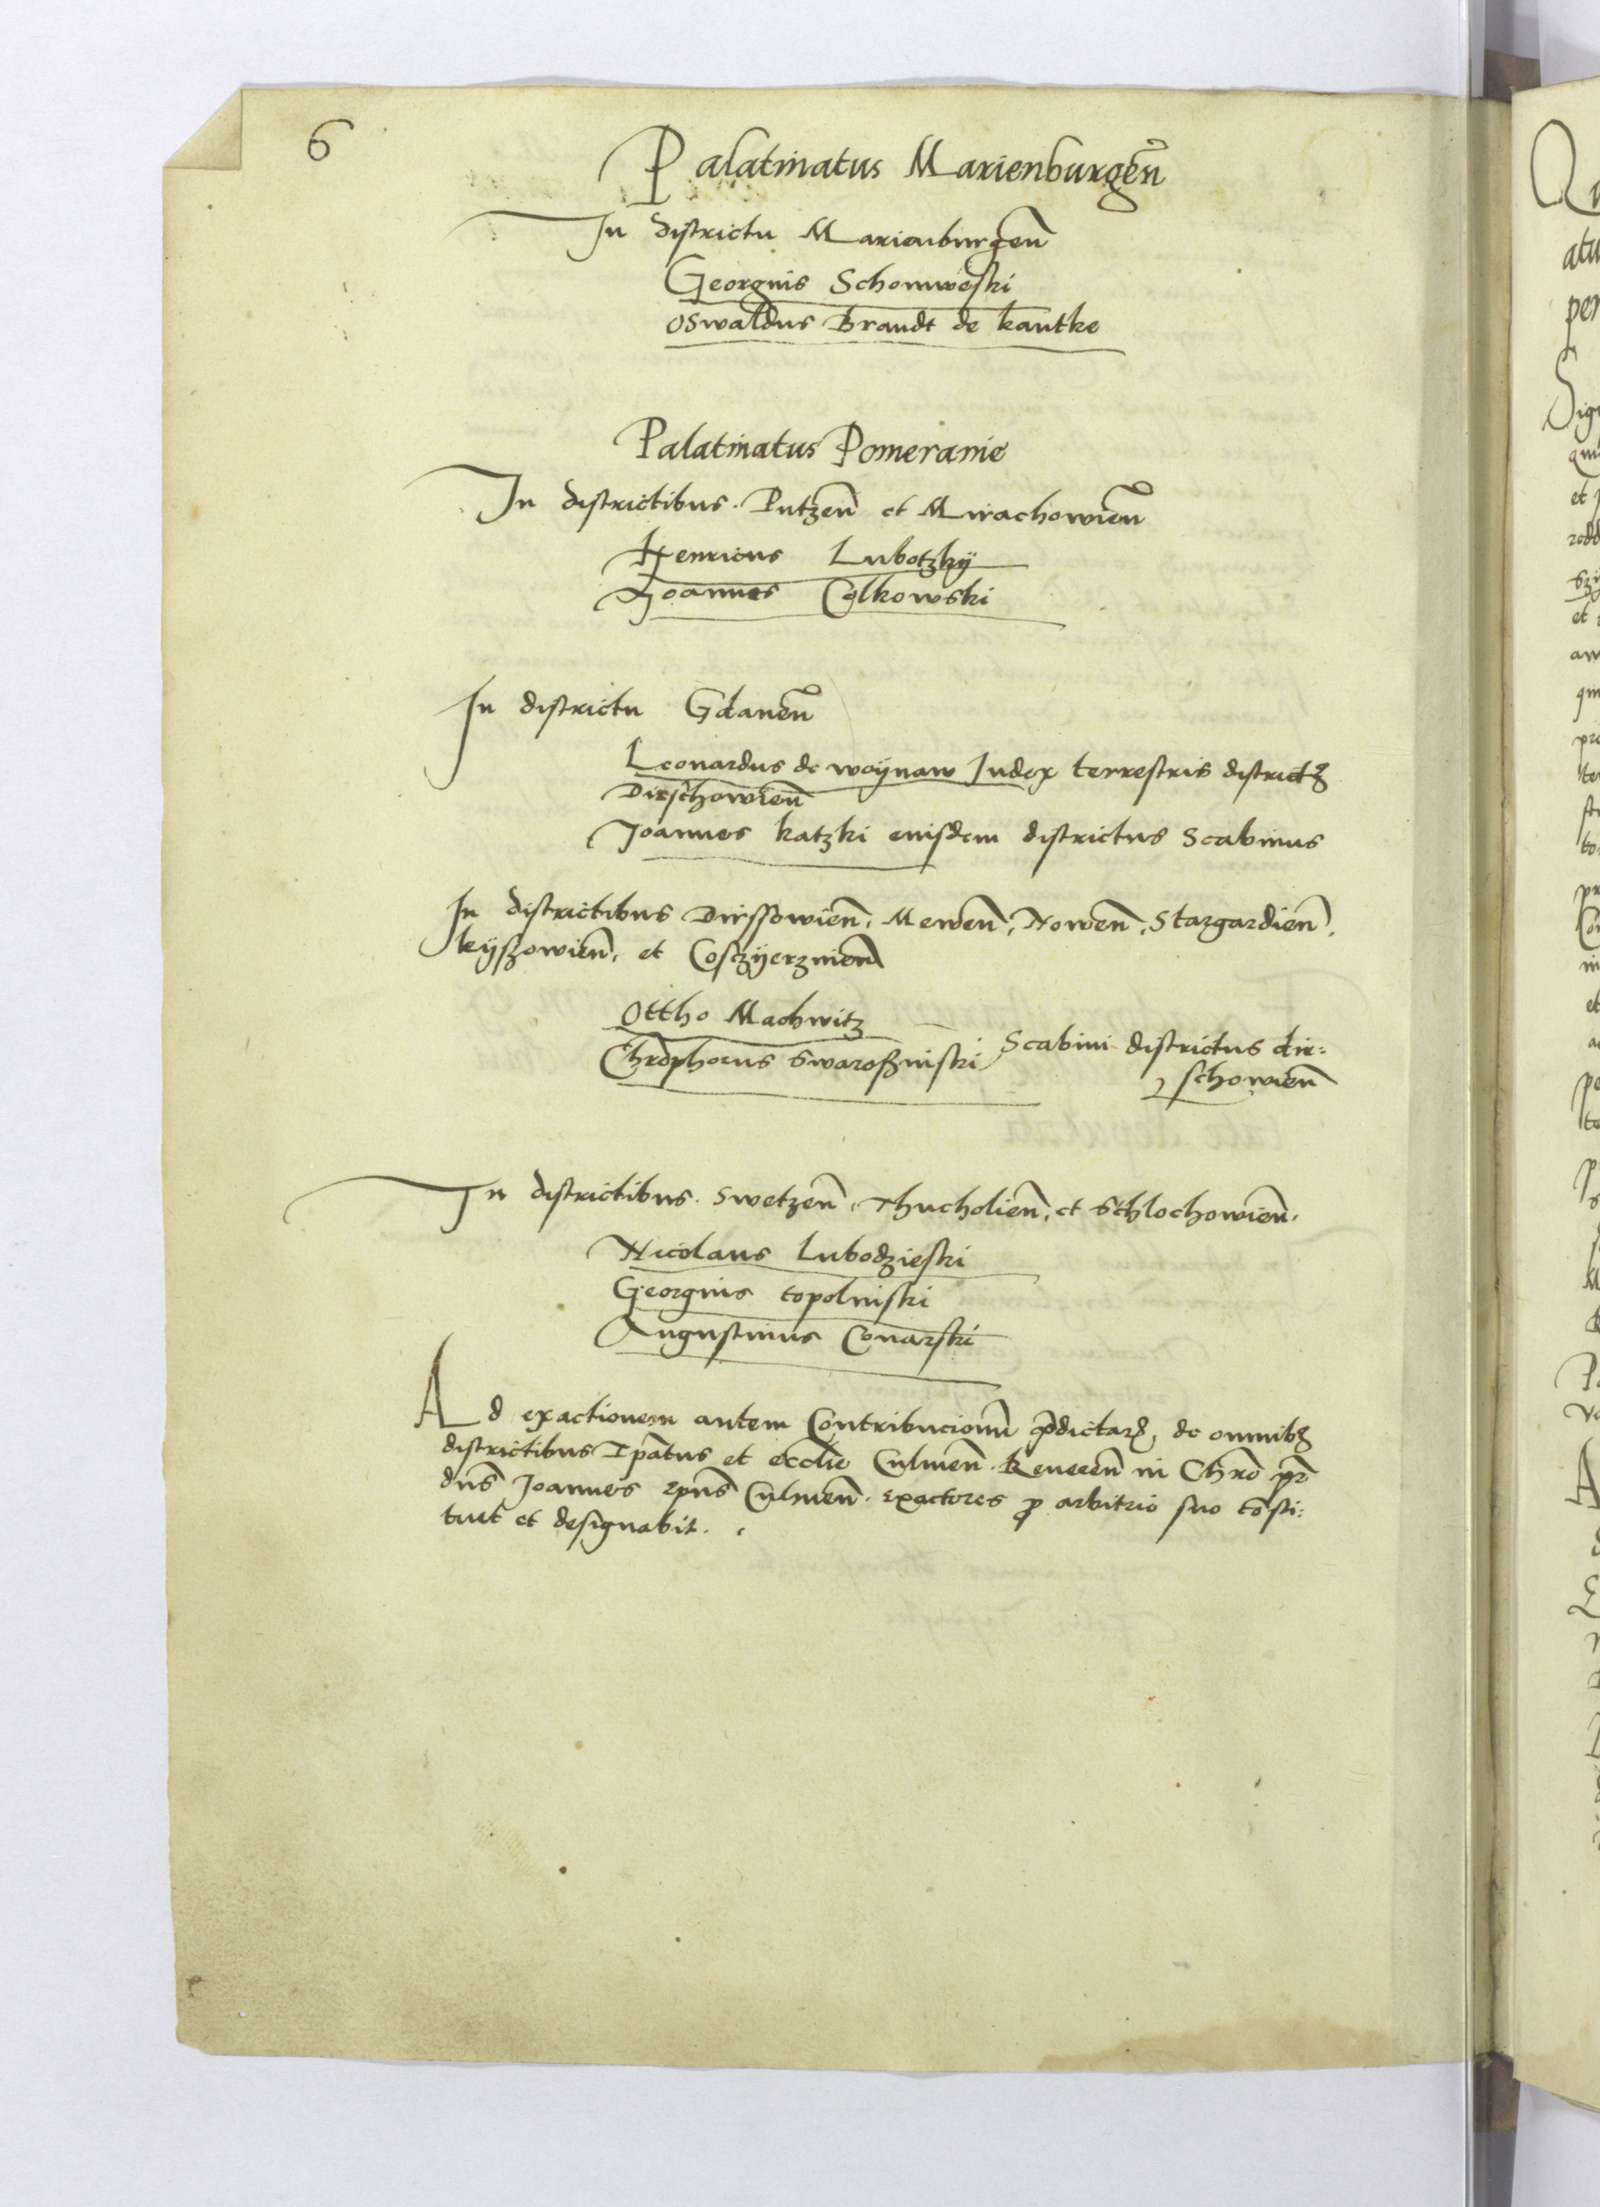 6
Palatinatus Marienburgen̄
In districtu Marienburgen̄
Georgius Schonweski
Oswaldus Brandt de kantke
Palatinatus Pomeranie
In districtibus. Putzen̄ et Mirachowien̄
Henricus Lubotzkÿ
Joannes Czlkowski
In districtu Gdanen̄
Leonardus de woÿnaw Judex terrestris districtꝫ
Dirschowien̄
Joannes katzki eiusdem districtus Scabinus
In districtibus Dirssowien̄, Mewen̄, Nowen̄, Stargardien̄,
kÿszowien̄, et Cosczÿerznien̄
Ottho Machwitz
Chrophorus Swaroßniski Scabini districtus dir:
schowien̄
In districtibus. Swetzen̄, Thucholien̄, et Schlochowien̄.
Nicolaus Lubodzieski
Georgius topolniski
Augustinus Conarski
Ad exactionem autem Contribucionū p̄dictarꝝ, de omnibꝫ
districtibus Ep̄atus et eccl̄ie Culmen̄. Reueren̄ in Chr̄o pr̄
dn̄s Joannes Ep̄us Culmen̄. exactores ꝓ arbitrio suo cōsti:
tuet et designabit.